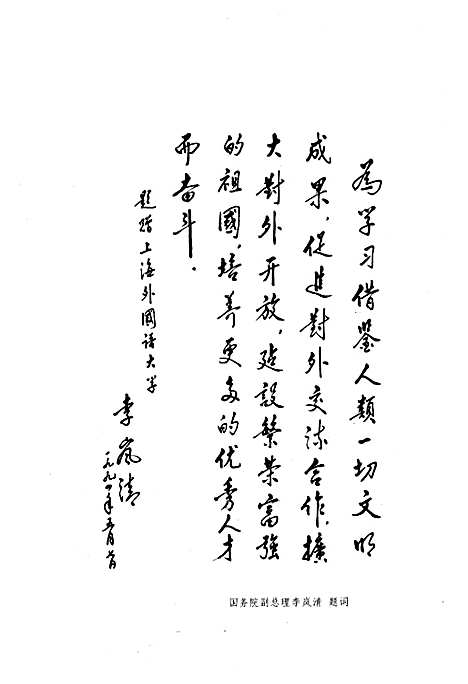 為学习借鉴人類一切文明
成果，促进對外交流合作，擴
大對外开放，建設繁荣富強
的祖國，培养更多的优秀人才
而奋斗．
题赠上海外國语大学
李岚清
一九九四年五月
国务院副总理李岚清 题词